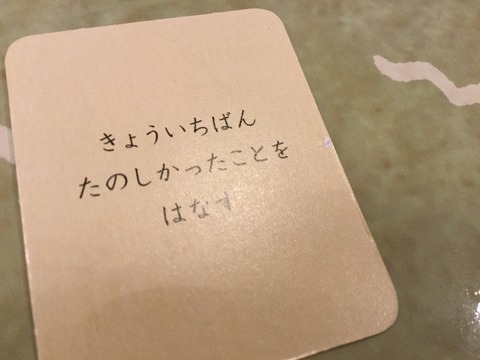 きょういちばん
たのしかったことを
はなす